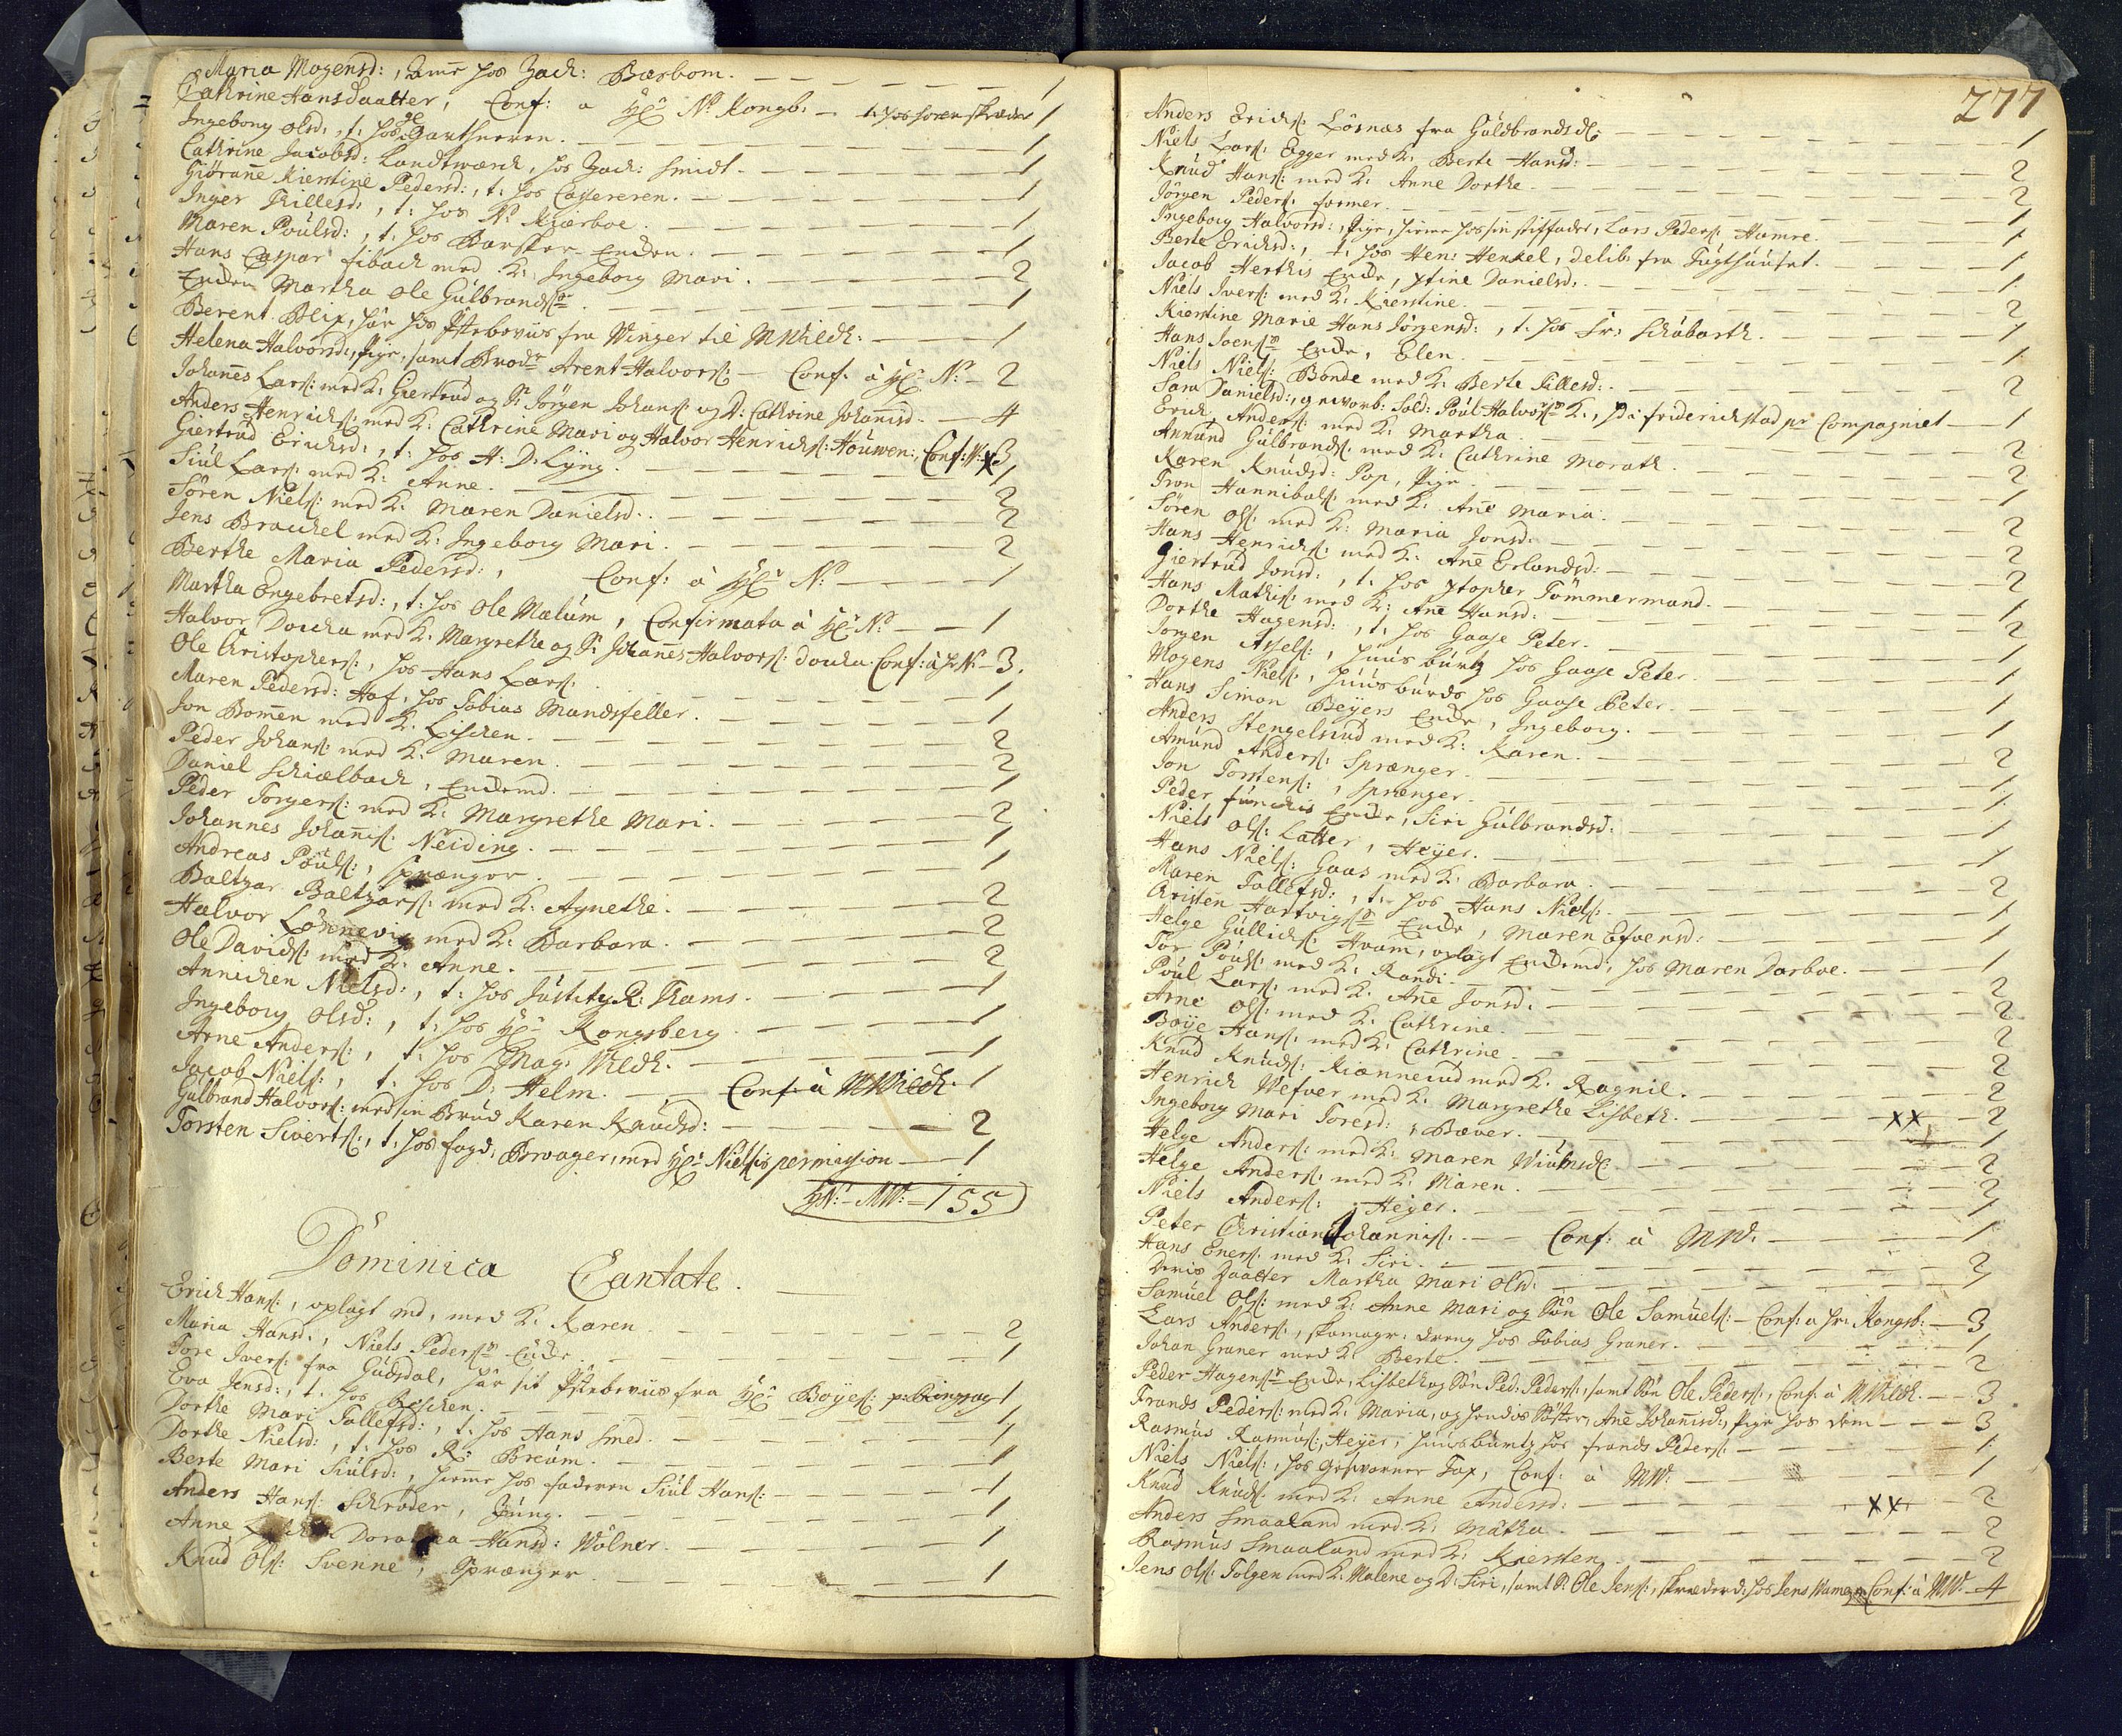 Maria Mogensd:, Amme hos Zach: Barbom. — 1
Cathrine Hansdaatter, Conf: a Hr N: Kongb: — t: hos Soren Skræder 1
Ingeborg Olsd:, t: hos Garthneren. — 1
Cathrine Jacobsd: Landtwærck, hos Zach: Smidt. — 1
Giørane Kierstine Pedersd:, t: hos Cassereren. — 1
Inger Thillesd:, t: hos N: Kierboe. — 1
Maren Poulsd:, t: hos Barsker-Enken. — 1
Hans Caspar Fibach med K: Ingeborg Mari. — 2
Enken Martha Ole Gulbrands. — 1
Berent Blix, har hos Attebeviis fra Winger til M Wildh: — 1
Helena Halvorsd:, Pige, samt Brodr Arent Halvors: — Conf. à Hr N: — 2
Johannes Lars: med K: Giertrud og S: Jörgen Johans: og D: Cathrine Johannisd. — 4
Anders Henrichs: med K: Cathrine Mari og Halvor Henrichs: Houwen: Conf: N: x 3
Giertrud Erichsd:, t: hos H: D: Lyng. — 1
Siul Lars: med K: Anne. — 2
Sören Niels: med K: Maren Danielsd. — 2
Jens Brackel med K: Ingeborg Mari. — 2
Berthe Maria Pedersd:, Conf: à Hr N: — 1
Martha Engebretsd:, t: hos Ole Mælum, Confirmata à Hr N: — 1
Halvor Doucka med K: Margrethe og S: Johannes Halvors: Doucka Conf: à Hr N: — 3.
Ole Christophers:, hos Hans Lars: — 1
Maren Pedersd: Haf, hos Tobias Mandsfeller. — 1
Jon Bomen med K: Lischen. — 2
Peder Johans: med K: Maren. — 2
Daniel Schielbach, Enkemd. — 1
Peder Torgers: med K: Margrethe Mari. — 2
Johannes Johanis: Neiding. — 1
Andreas Pouls:, Sprænger. — 1
Baltzar Baltzars: med K: Agnethe. — 2
Halvor Lönnevig med K: Barbara. — 2
Ole Davids: med K: Anne. — 2
Annichen Nielsd:, t: hos Justity R: Thams. — 1
Ingeborg Olsd:, t: hos Hr Kongsberg — 1
Arne Anders:, t: hos Mag: Wildh. — 1
Jacob Niels:, t: hos D: Helm. — Conf: à M Wildh. 1
Gulbrand Halvors: med sin Brud Karen Knudsd: — 2
Torsten Sivertz:, t: hos Fogd: Brvager, med Hr Nielsis permission — 1
HN: — MW: — 155
Dominica Cantate.
Erich Hans:, oplagt md, med K: Karen — 2
Maria Hansd:, Niels Peders Enke — 1
Tore Ivers: fra Gudsdal, har sit Attebeviis fra Hr Boyes: — 1
Eva Jensd:, t: hos Beschen. — 1
Dorthe Mari Tallefsd:, t: hos Hans Smed. — 1
Dorthe Nielsd:, t: hos R: Breum. — 1
Berte Mari Siulsd:, hiemme hos Faderen Siul Hans: — 1
Anders Hans: Schrøder, Jung. — 1
Anne Dorothea Hansd: Wölner. — 1
Knud Ols: Svenne, Sprænger. — 1
277
Anders Erichs: Lösnæs fra Guldbrandsd: — 1
Niels Lars: Egger med K: Berte Hansd: — 2
Knud Hans: med K: Anne Dorthe. — 2
Jörgen Peders: former. — 1
Ingeborg Halvorsd:, Pige, hieme hos sin stiffader, Lars Peders: Hamre. — 1
Berte Erichsd:, t: hos Hen: Henkel, delib: fra Tugthuuset. — 1
Jacob Herthis Enke, Stine Danielsd: — 1
Niels Ivers: med K: Kierstine. — 2
Kierstine Marie Hans Jörgensd:, t: hos Fr: Schubarth. — 1
Hans Svens Enke, Elen. — 1
Niels Niels: Bonde med K: Berte Pillesd: — 2
Sara Danielsd:, gevorb: Sold: Poul Halvors K:, pt: Friderichstad pr Compagniet — 1
Erich Anders: med K: Martha. — 2
Annund Gulbrands: med K: Cathrine Morath. — 2
Karen Knudsd: Pop, Pige. — 1
Tron Hannibals: med K: Ane Maria. — 2
Sören Ols: med K: Maria Jonsd: — 2
Hans Henrichs: med K: Ane Erlandsd: — 2
Giertrud Jonsd:, t: hos Stopher Tömmermand. — 1
Hans Mathis: med K: Ane Hansd: — 2
Dorthe Hagensd:, t: hos Gaase Peter. — 1
Jorgen Assels:, huusburtz hos Gaase Peter. — 1
Mogens Niels:, huusburds hos Gaase Peter. — 1
Hans Simon Beyers Enke, Ingeborg. — 1
Anders Stengelsrud med K: Karen. — 2
Amund Anders: Sprænger. — 1
Jon Torstens:, Sprænger. — 1
Peder Funckis Enke, Siri Gulbrandsd: — 1
Niels Ols: Latter, Heyer. — 1
Hans Niels: Gaas med K: Barbara. — 2
Maren Tallefsd:, t: hos Hans Niels: — 1
Christen Hartvigs Enke, Maren Efvensd: — 1
Helge Gullichs: Hvam, oplagt Enkemd: hos Maren Darboe. — 1
Tor Pouls: med K: Randi. — 2
Poul Lars: med K: Ane Jonsd: — 2
Arne Ols: med K: Cathrine. — 2
Boye Hans: med K: Cathrine — 2
Knud Knuds: Kiennerud med K: Ragnil. — 2
Henrich Wefver med K: Margrethe Lisbeth. — 2
Ingeborg Mari Toresd: Bæver. — xx — 1
Helge Anders: med K: Maren — 2
Helge Anders: med K: Maren. — 2
Niels Anders: Heyer. — 1
Peter Christian Johannis: — Conf: à MW: — 1
Hans Eners: med K: Siri. — 2
Deris Daatter Martha Mari Olsd: — 1
Samuel Ols: med K: Anne Mari og Sön Ole Samuels: — Conf: a Hr: Kongsb: — 3
Lars Anders:, skomagr: dreng hos Tobias Graner. — 1
Johan Graner med K: Berte. — 2
Peder Hagens Enke, Lisbeth og Sön Ped: Peders:, samt Sön Ole Peders:, Conf: à M Wildh. — 3
Frands Peders: med K: Maria, og hendis Söster, Ane Johannisd:, Pige hos dem — 3
Rasmus Rasmus:, Heyer, huusburtz hos Frands Peders: — 1
Niels Niels:, hos Gesvorner Fax, Conf: à MW: — 1
Knud Knuds: med K: Anne Andersd: — 2
Anders Smaaland med K: Mätha. — xx — 2
Rasmus Smaaland med K: Kiersten — 2
Jens Ols: Folgen med K: Malene og D: Siri, samt S: Ole Jens:, skræderd: hos Jens Conf: à MW — 4